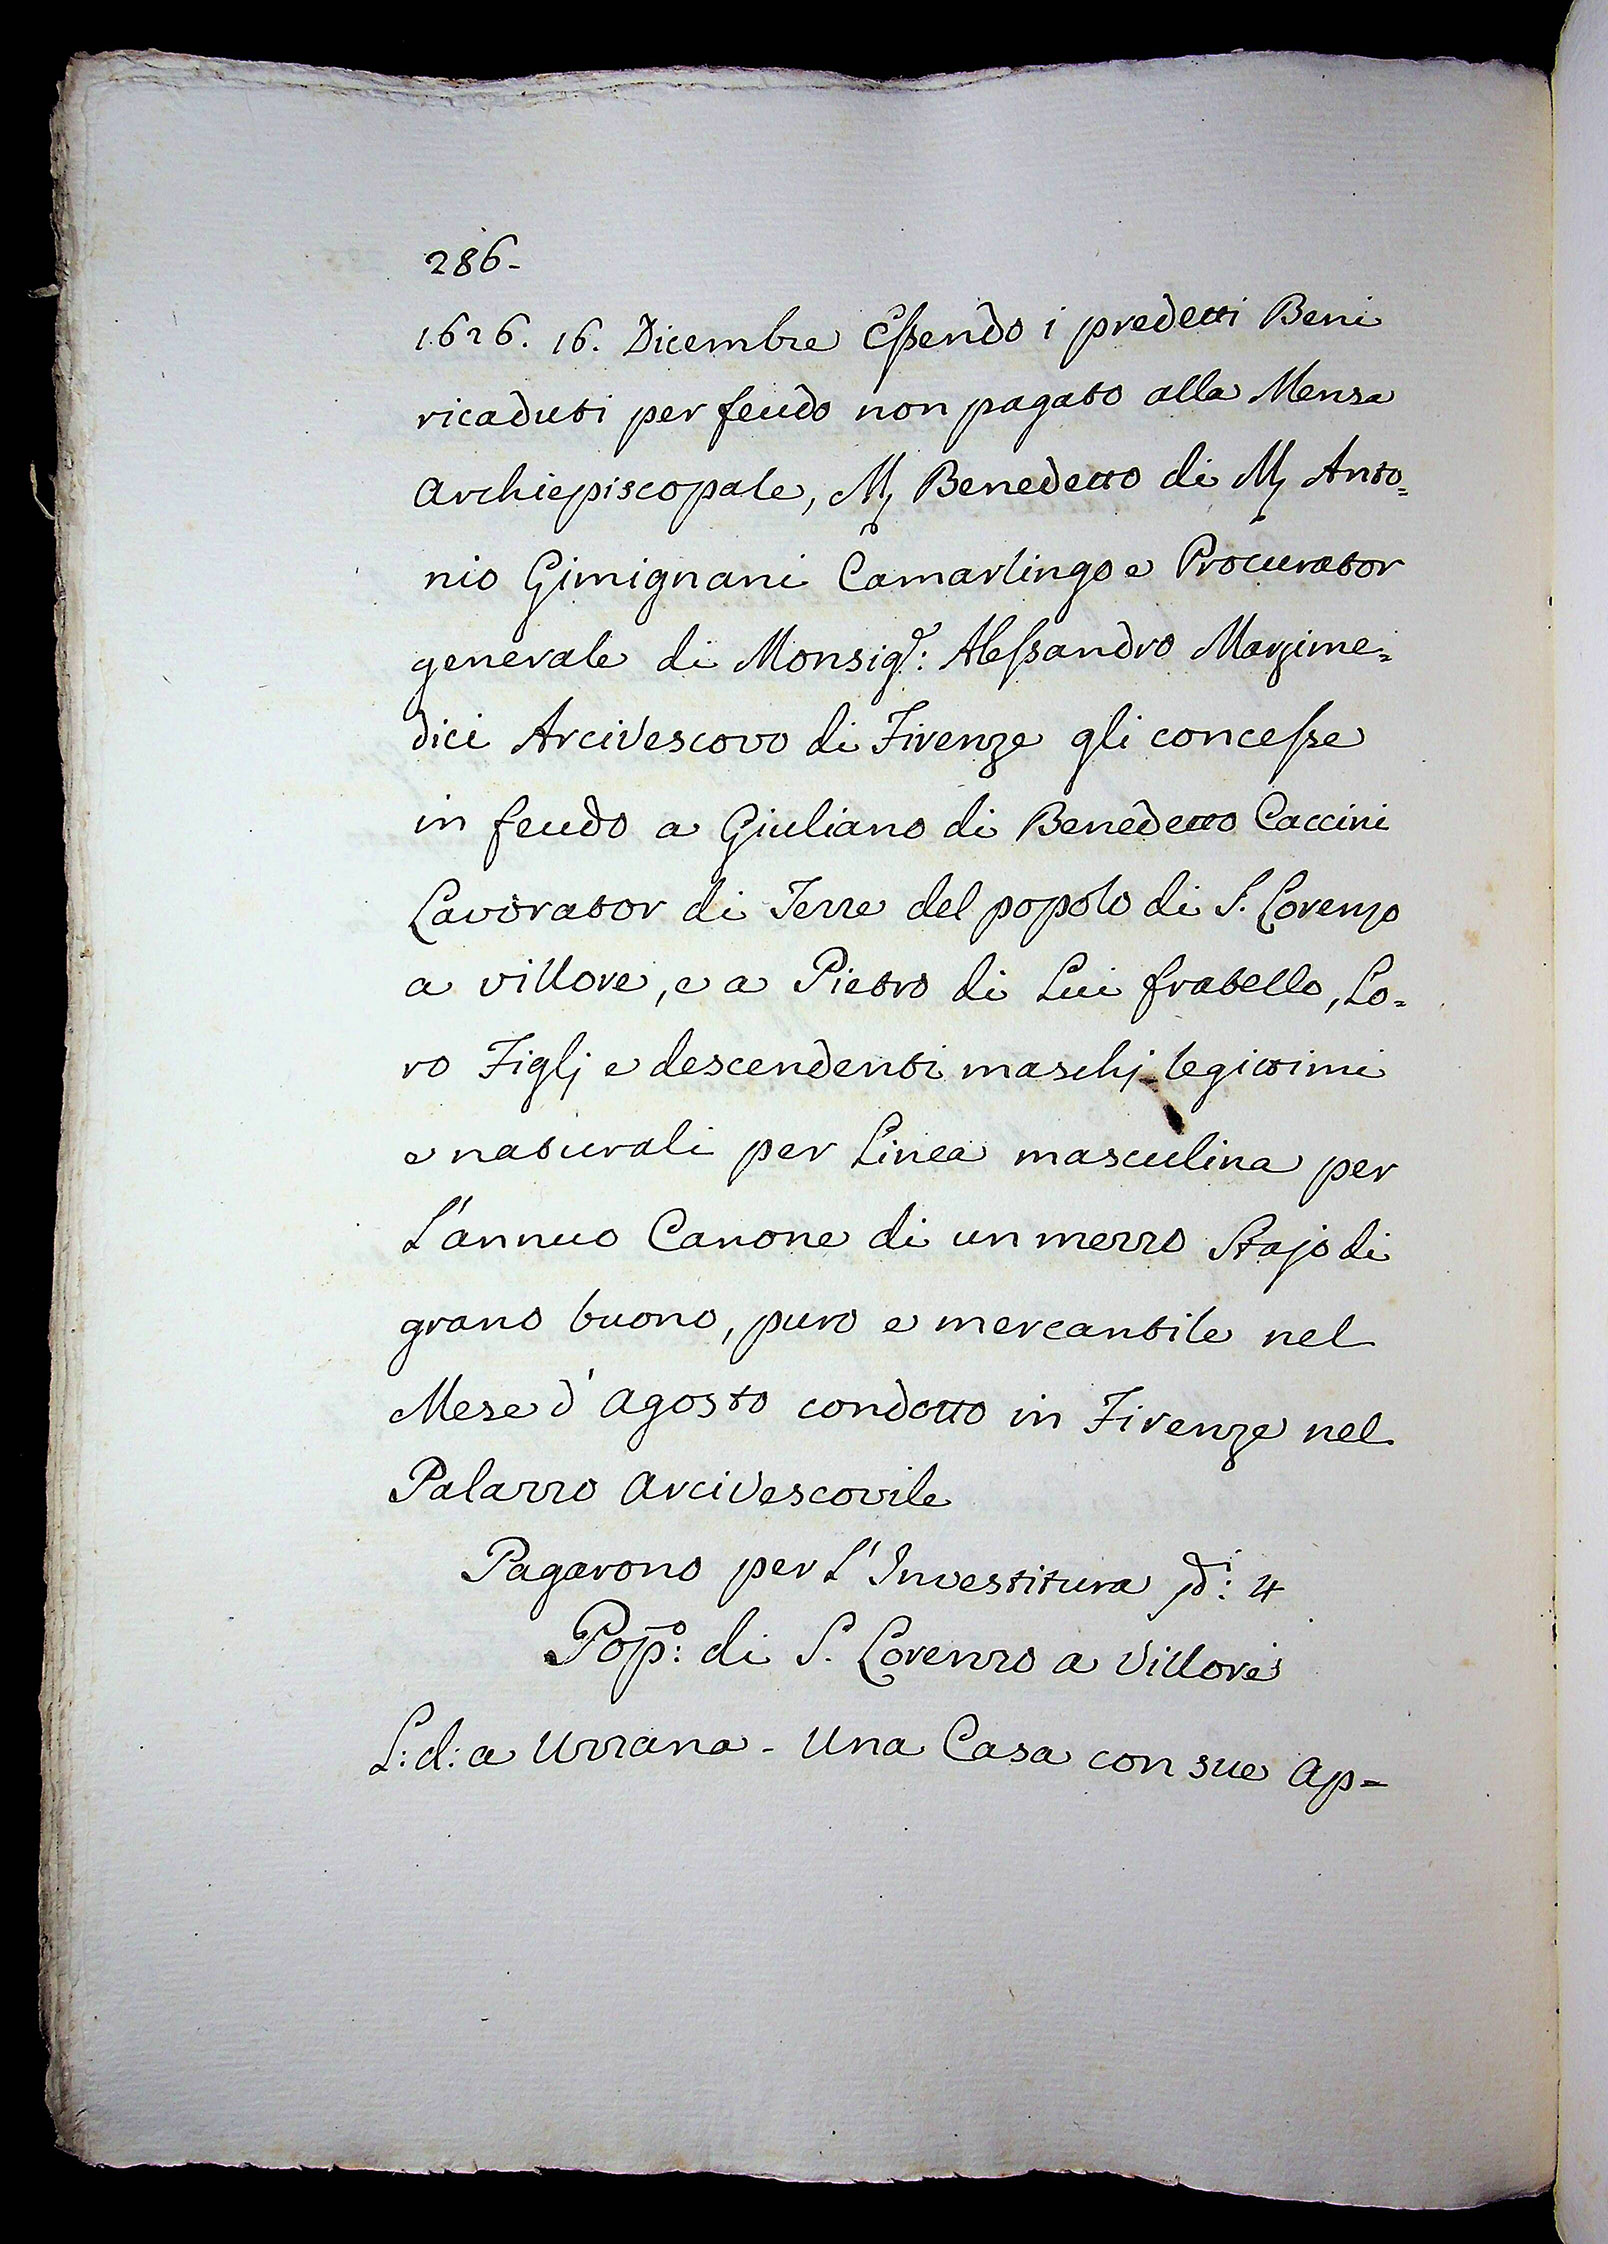 286-
1626. 16. Dicembre Essendo i predetti Beni
ricaduti per feudo non pagato alla Mensa
Archiepiscopale, M, Benedetto di M, Anto=
nio Gimignani Camarlingo e Procurator
generale di Monsig.r: Alessandro Marzime=
dici Arcivescovo di Firenze gli concesse
in feudo a Giuliano di Benedetto Caccini
Lavorator di Terre del popolo di S. Lorenzo
a villore, e a Pietro di Lui fratello, Lo=
ro Figlj e descendenti maschj legittimi
e naturali per Linea masculina per
L'annuo Canone di un mezzo Stajo di
grano buono, puro e mercantile nel
Mese d'Agosto condotto in Firenze nel
Palazzo Arcivescovile
Pagarono per L'Investitura : 4
Pop.o: di S. Lorenzo a Villore
L: d: a Uzzana - Una Casa con sue Ap=